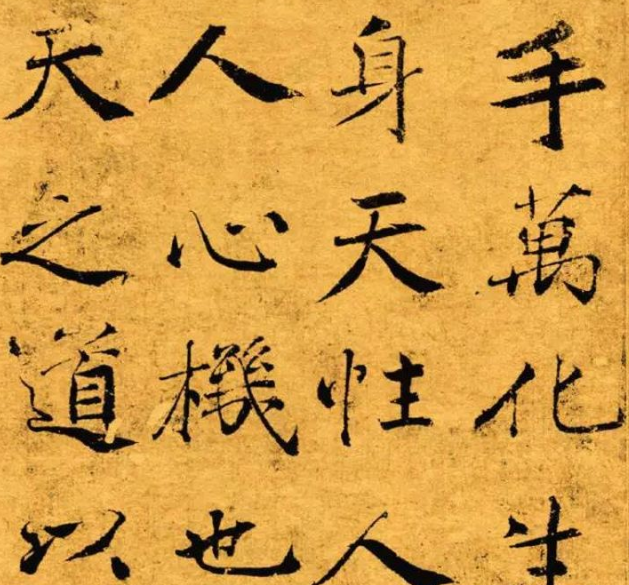 手萬化生
身天性人
人心機也
天之道以